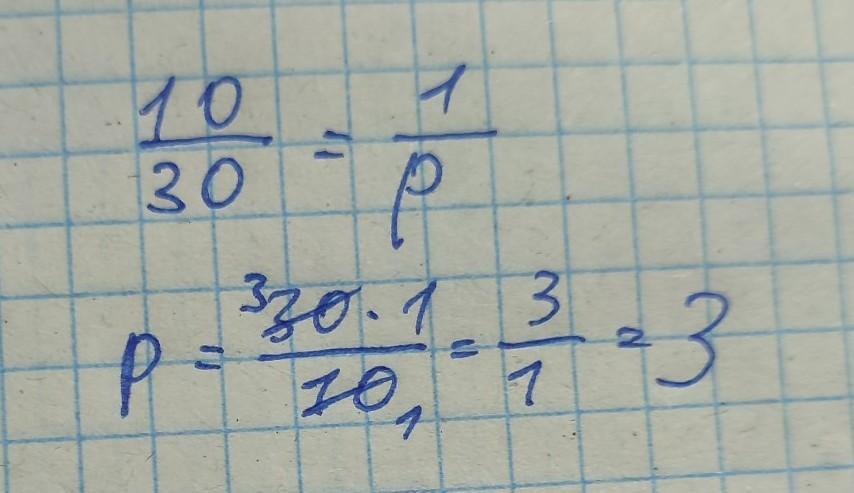 10/30 = 1/p
p = ³30·1/10₁ = 3/1 = 3